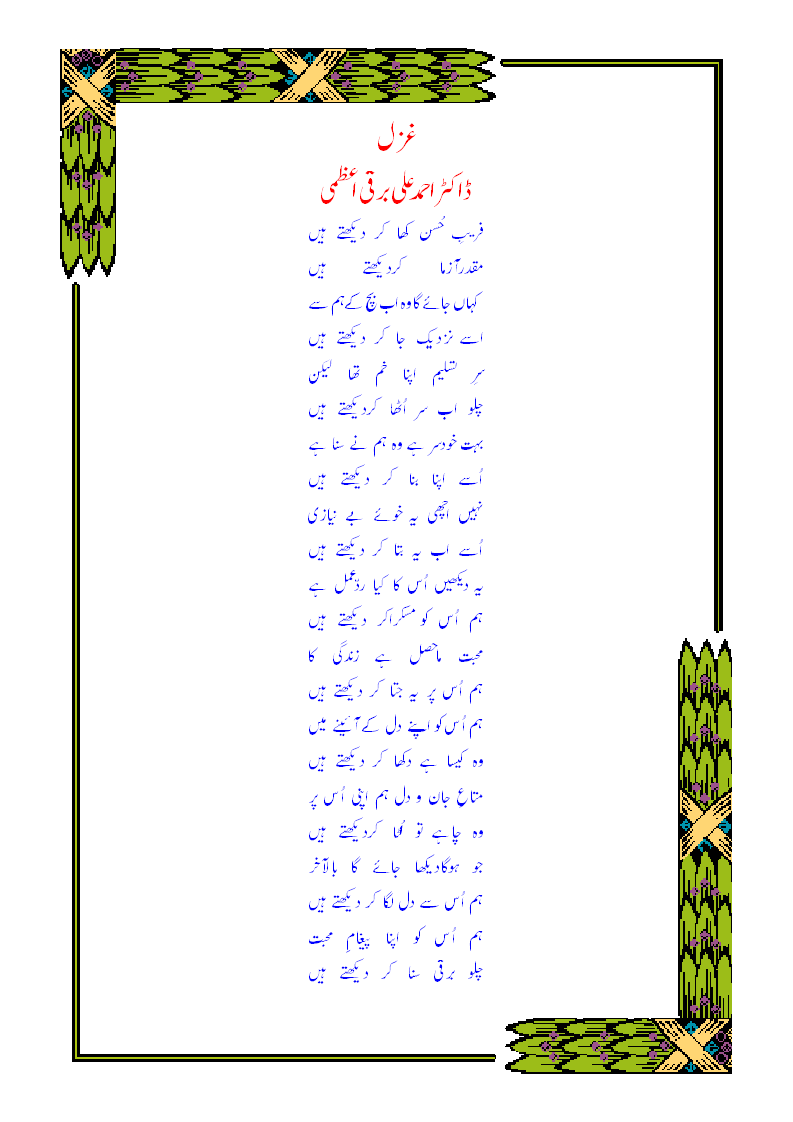 غزل
ڈاکٹر احمد علی برقی اعظمی
فریبِ حُسن کھا کر دیکھتے ہیں
مقدر آزما کر دیکھتے ہیں
کہاں جائے گا وہ اب بچ کے ہم سے
اسے نزدیک جا کر دیکھتے ہیں
سرِ تسلیم اپنا خم تھا لیکن
چلو اب سر اُٹھا کر دیکھتے ہیں
بہت خودسر ہے وہ ہم نے سنا ہے
اُسے اپنا بنا کر دیکھتے ہیں
نہیں اچھی یہ خوئے بے نیازی
اُسے اب یہ بتا کر دیکھتے ہیں
یہ دیکھیں اُس کا کیا ردِّعمل ہے
ہم اُس کو مسکرا کر دیکھتے ہیں
محبت ماحصل ہے زندگی کا
ہم اُس پر یہ جتا کر دیکھتے ہیں
ہم اُس کو اپنے دل کے آئینے میں
وہ کیسا ہے دکھا کر دیکھتے ہیں
متاعِ جان و دل ہم اپنی اُس پر
وہ چاہے تو لُٹا کر دیکھتے ہیں
جو ہوگا دیکھا جائے گا بالآخر
ہم اُس سے دل لگا کر دیکھتے ہیں
ہم اُس کو اپنا پیغامِ محبت
چلو برقی سنا کر دیکھتے ہیں